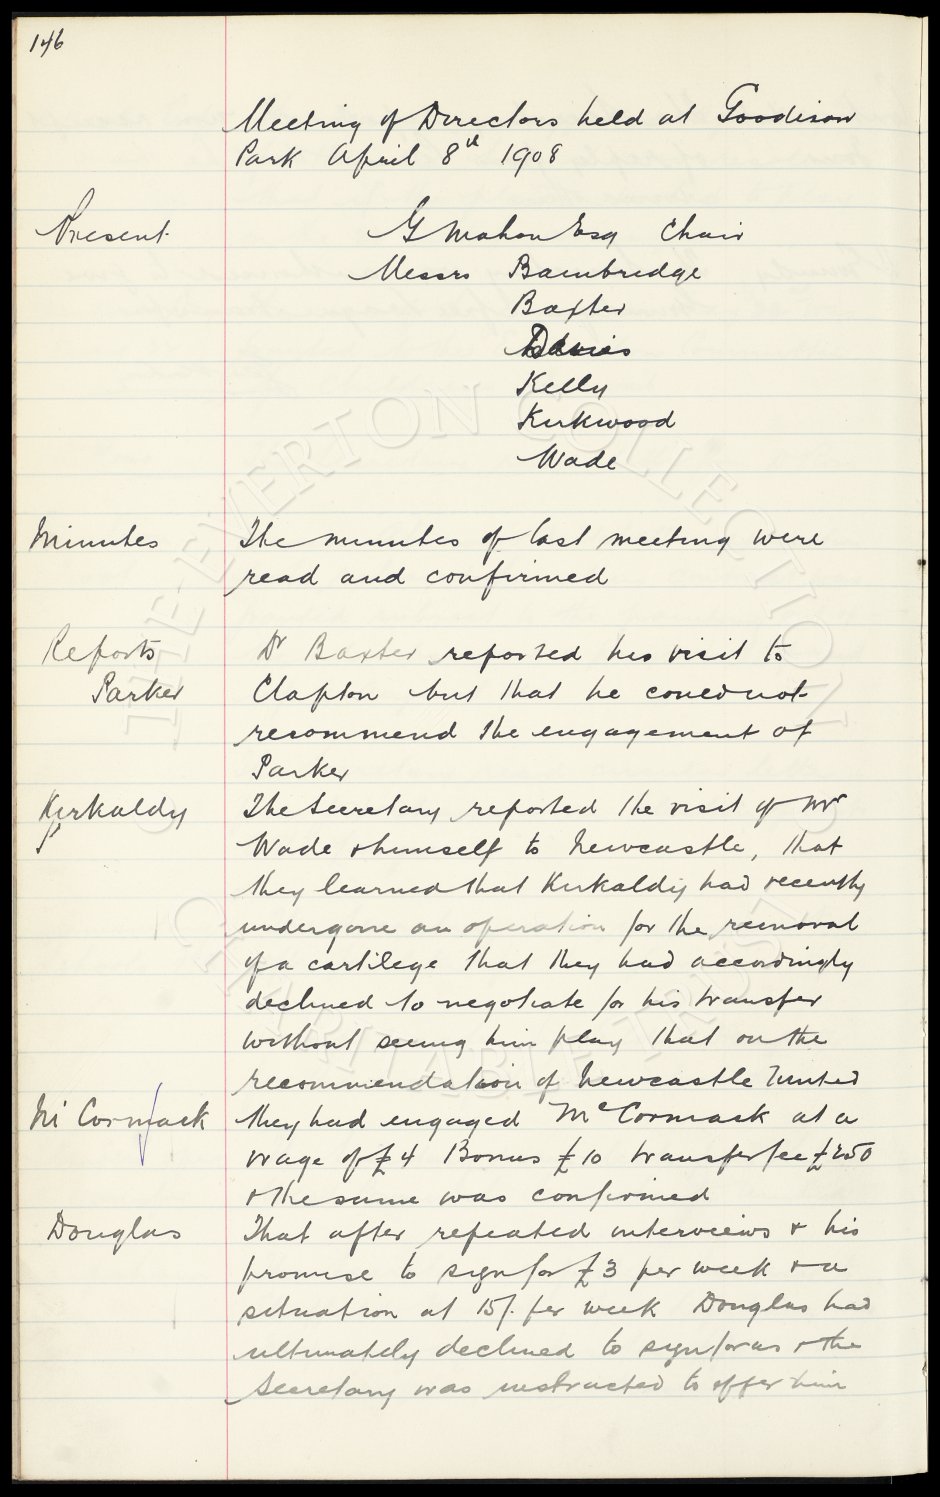 146
Meeting of Directors held at Goodison
Park April 8th 1908
Present G Mahon Esq Chair
Messrs Bainbridge
Baxter
Davies
Kelly
Kirkwood
Wade
Minutes The minutes of last meeting were
read and confirmed
Reports Dr Baxter reported his visit to
Parker Clapton but that he could not
recommend the engagement of
Parker
Kirkaldy The Secretary reported the visit of Mr
Wade & himself to Newcastle, that
they learned that Kirkaldy had recently
undergone an operation for the removal
of a cartilege that they had accordingly
declined to negotiate for his transfer
without seeing him play that on the
recommendation of Newcastle United
Mc Cormack they had engaged Mc Cormack at a
wage of £4 Bonus £10 transfer fee £250
& the same was confirmed
Douglas That after repeated interviews & his
promise to sign for £3 per week & a
situation at 15/- per week Douglas had
ultimately declined to sign for us & the
Secretary was instructed to offer him
THE EVERTON COLLECTION
CHARITABLE TRUST